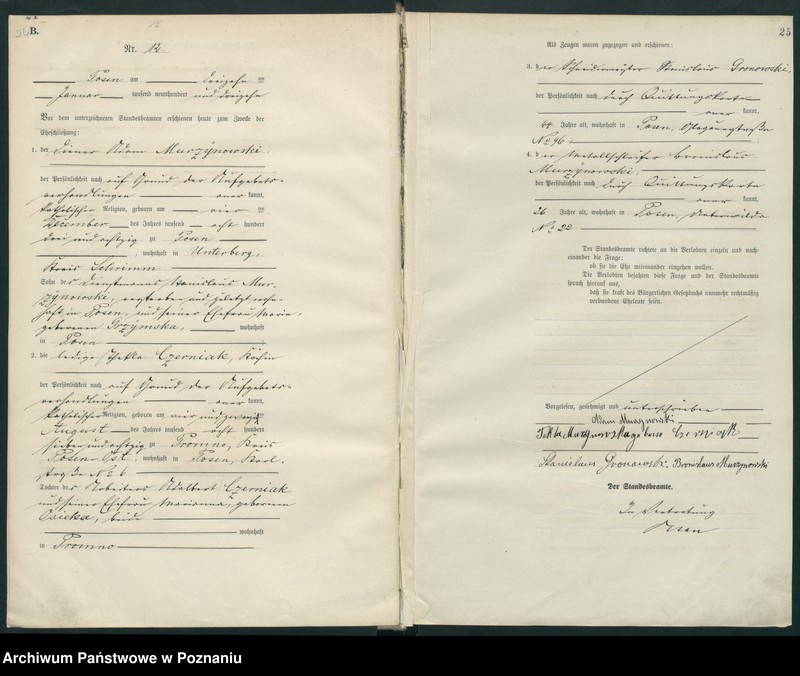 B.
Nr. 12
Posen am dreizehnten
Januar tausend neunhundert und dreizehn
Vor dem unterzeichneten Standesbeamten erschienen heute zum Zwecke der
Eheschließung:
1. der Diener Adam Murzynowski,
der Persönlichkeit nach auf Grund der Aufgebots-
verhandlungen kannt,
katholischer Religion, geboren am vier
Dezember des Jahres tausend acht hundert
drei und achtzig zu Posen
, wohnhaft in Unterberg,
Kreis Schrimm
Sohn des Dienstmanns Stanislaus Mur-
zynowski, verstorben und zuletzt wohn-
haft in Posen, und seiner Ehefrau Maria,
geborenen Grzymska, wohnhaft
in Posen
2. die ledige Thekla Czerniak, Köchin
der Persönlichkeit nach auf Grund der Aufgebots-
verhandlungen kannt,
katholischer Religion, geboren am vierundzwanzig
August des Jahres tausend acht hundert
sieben und achtzig zu Promno, Kreis
Posen Ost, wohnhaft in Posen, Karl-
straße No 6
Tochter des Arbeiters Adalbert Czerniak
und seiner Ehefrau Marianna, geborenen
Osieka, beide
wohnhaft
in Promno
25
Als Zeugen waren zugezogen und erschienen:
3. der Schneidermeister Stanislaus Gronowski,
der Persönlichkeit nach durch Quittungskarte
kannt,
44 Jahre alt, wohnhaft in Posen,
No 96
4. der Metallschleifer Bronislaus
Murzynowski,
der Persönlichkeit nach durch Quittungskarte
kannt,
26 Jahre alt, wohnhaft in Posen, Unterwilda
No 22
Der Standesbeamte richtete an die Verlobten einzeln und nach-
einander die Frage:
ob sie die Ehe miteinander eingehen wollen.
Die Verlobten bejahten diese Frage und der Standesbeamte
sprach hierauf aus,
daß sie kraft des Bürgerlichen Gesetzbuchs nunmehr rechtmäßig
verbundene Eheleute seien.
Vorgelesen, genehmigt und unterschrieben
Adam Murzynowski
Tekla Murzynowska geborene Czerniak
Stanislaus Gronowski. Bronislaus Murzynowski
Der Standesbeamte.
In Vertretung
Archiwum Państwowe w Poznaniu